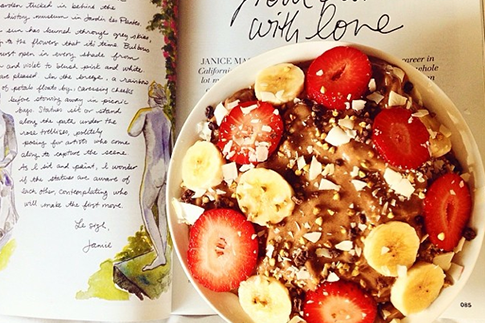 garden tucked in behind the
history museum in Jardin des Plantes
sun has burned through grey skies,
to the flowers that it's time. Bulbous
burst open in every shade from
and violet to blush pink and white
are pleased. In the breeze, a rainbow
of petals float by, caressing cheeks
before stowing away in picnic
bags. Statues sit or stand
along the path under the
rose trellises, politely
posing for artists who come
along to capture the scene
As I sit and paint, I wonder
if the statues are aware of
each other, contemplating who
will make the first move.
Le sigh,
Jamie
with love
JANICE MA
California
lot mor
career in
whole
085